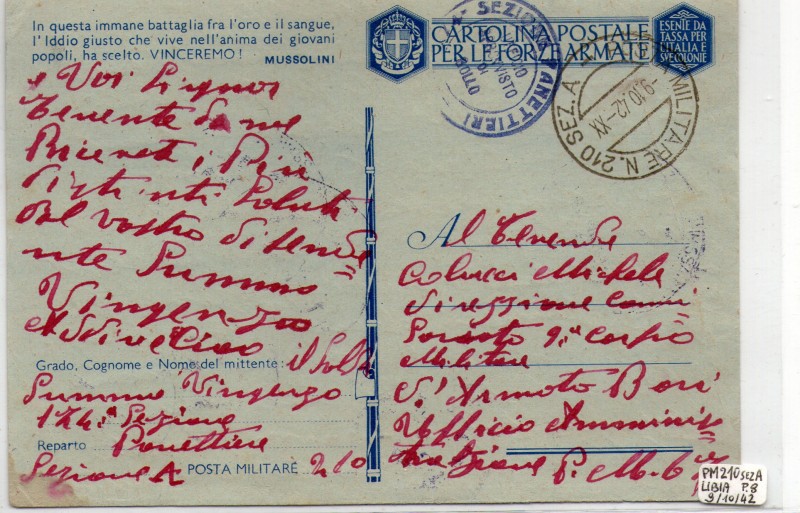 In questa immane battaglia fra l'oro e il sangue,
l'Iddio giusto che vive nell'anima dei giovani
popoli, ha scelto. VINCEREMO! MUSSOLINI
CARTOLINA POSTALE
PER LE FORZE ARMATE
ESENTE DA
TASSA PER
L'ITALIA E
SVE COLONIE
SEZIONE PANETTIERI
VISTO
POSTA MILITARE N. 210 SEZ. A
-9.10.42-XX
e Voi Signor
Tenente da me
Ricevete i Più
distinti Saluti
dal vostro dipende
nte Summo
Vingenzo
Grado, Cognome e Nome del mittente: il Sold
Summo Vingenzo
174ª Sezione
Reparto Panettiere
Sezione A POSTA MILITARE 210
Al Tenende
Colucci Michele
Direzzione Comm
9º Corpo
Militare
Bari
Ufficio Amminis
trazione P. M.
PM210 SEZ A
LIBIA P.8
9/10/42